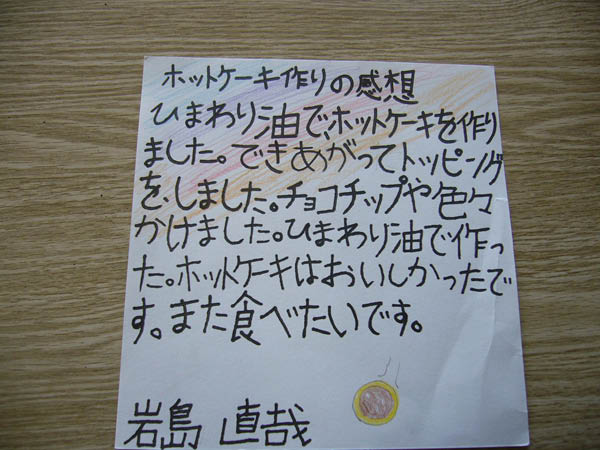 ホットケーキ作りの感想
ひまわり油で、ホットケーキを作り
ました。できあがってトッピング
を、しました。チョコチップや色々
かけました。ひまわり油で作っ
た。ホットケーキはおいしかったで
す。また食べたいです。
岩島 直哉